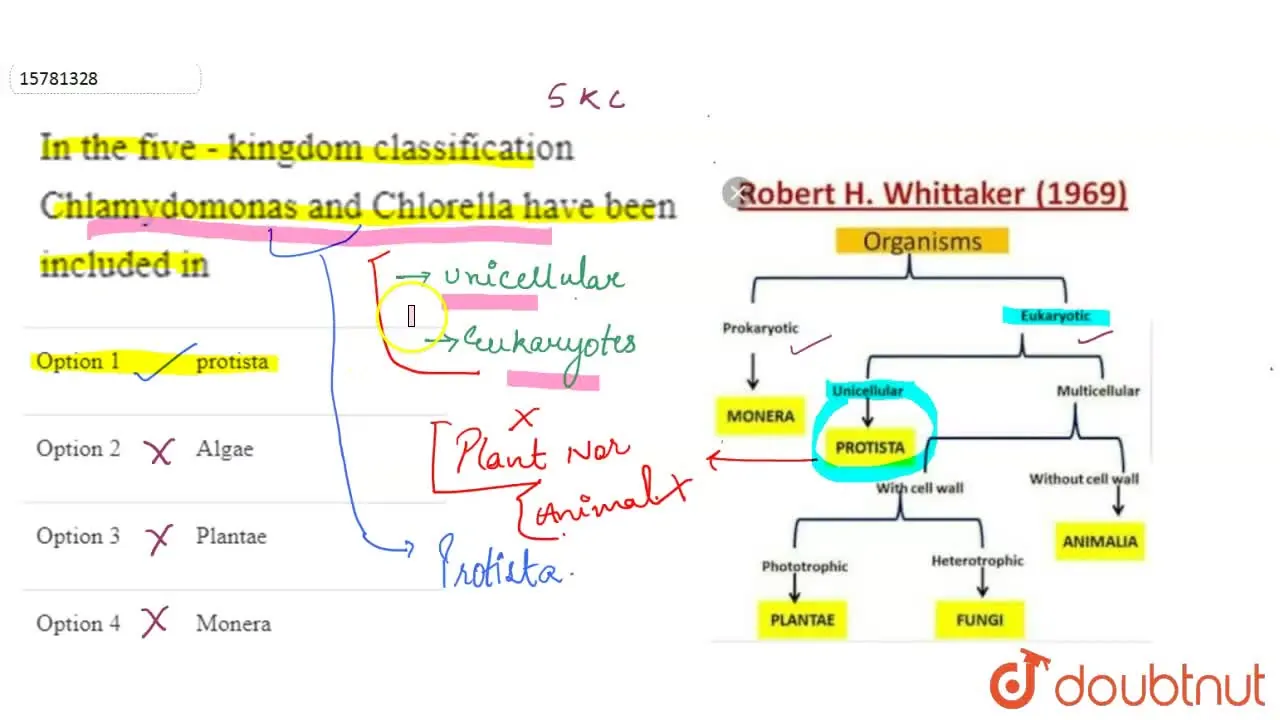 15781328
5 K C
In the five - kingdom classification
Chlamydomonas and Chlorella have been
included in
→ unicellular
→ eukaryotes
Option 1 protista
Option 2 Algae
Option 3 Plantae
Option 4 Monera
Plant Nor
Animal
Protista.
Robert H. Whittaker (1969)
Organisms
Prokaryotic
Eukaryotic
Unicellular
Multicellular
MONERA
PROTISTA
With cell wall
Without cell wall
ANIMALIA
Phototrophic
Heterotrophic
PLANTAE
FUNGI
doubtnut